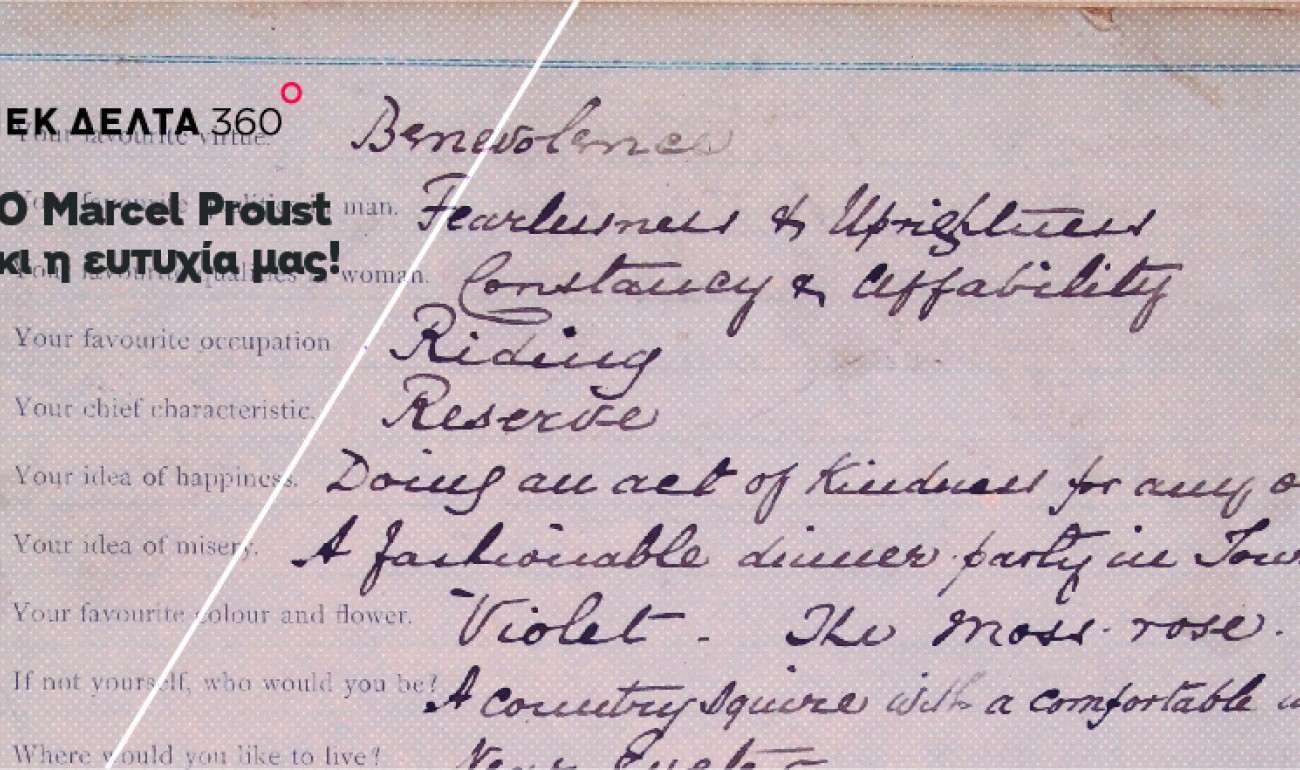 ΕΚ ΔΕΛΤΑ 360
Your favourite virtue. Benevolence
Ο Marcel Proust
κι η ευτυχία μας!
man. Fearlessness & Uprightness
Your favourite qualities woman. Constancy & Affability
Your favourite occupation Riding
Your chief characteristic. Reserve
Your idea of happiness. Doing an act of Kindness for any
Your idea of misery. A fashionable dinner party in
Your favourite colour and flower. Violet - The Moss-rose.
If not yourself, who would you be? A country Squire with a comfortable
Where would you like to live? Near